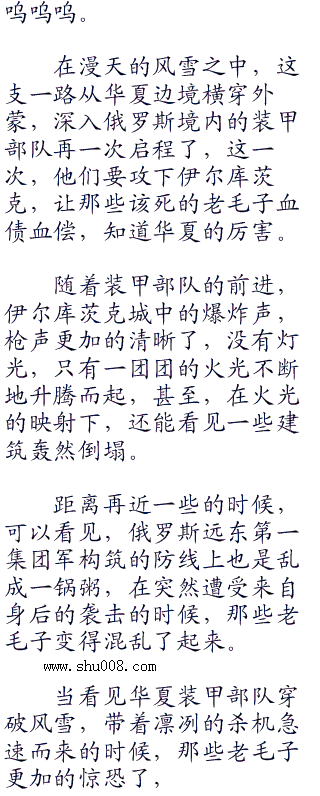 呜呜呜。
在漫天的风雪之中，这
支一路从华夏边境横穿外
蒙，深入俄罗斯境内的装甲
部队再一次启程了，这一
次，他们要攻下伊尔库茨
克，让那些该死的老毛子血
债血偿，知道华夏的厉害。
随着装甲部队的前进，
伊尔库茨克城中的爆炸声，
枪声更加的清晰了，没有灯
光，只有一团团的火光不断
地升腾而起，甚至，在火光
的映射下，还能看见一些建
筑轰然倒塌。
距离再近一些的时候，
可以看见，俄罗斯远东第一
集团军构筑的防线上也是乱
成一锅粥，在突然遭受来自
身后的袭击的时候，那些老
毛子变得混乱了起来。
www.shu008.com
当看见华夏装甲部队穿
破风雪，带着凛冽的杀机急
速而来的时候，那些老毛子
更加的惊恐了，